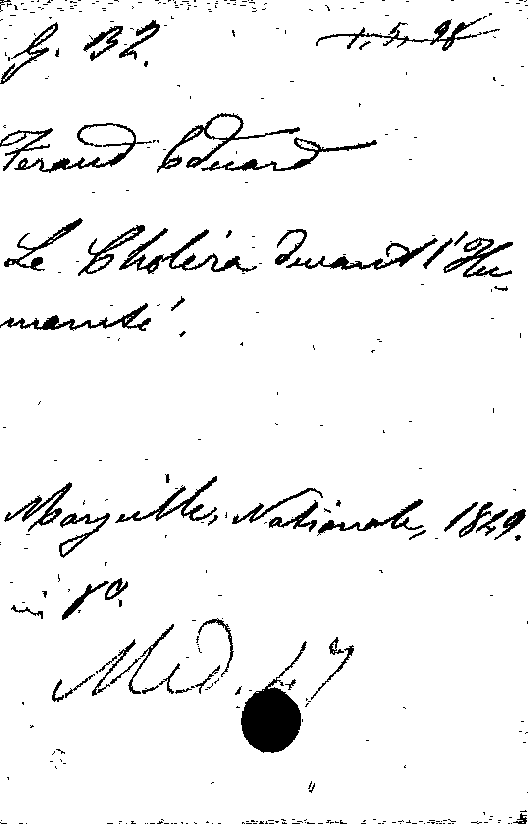 G. B2. 1, 5, 98
Feraud Eduard
Le Choléra devant l'Hu-
manité.
Marseille, Nationale, 1849.
in 8º.
Med. 47